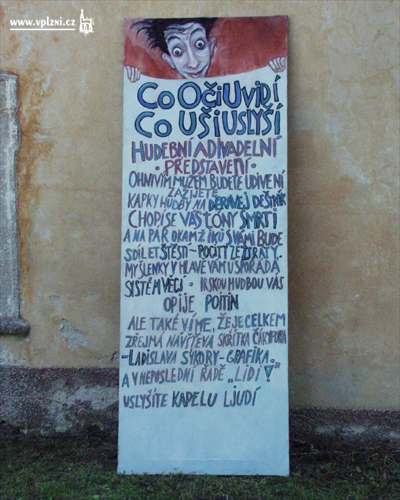 www.vplzni.cz
CO OČI UVIDÍ
CO UŠI USLYŠÍ
HUDEBNÍ A DIVADELNÍ
• PŘEDSTAVENÍ •
OHNIVÍM MUŽEM BUDETE UDIVENI
ZAŽIJETE
KAPKY HUDBY NA DĚRAVEJ DEŠTNÍK
CHOPÍ SE VÁS TÓNY SMRTI
A NA PÁR OKAMŽIKŮ S VÁMI BUDE
SDÍLET ŠTĚSTÍ - POCITY ZE ZTRÁTY.
MYŠLENKY V HLAVĚ VÁM USPOŘÁDÁ
SYSTÉM VĚCÍ • IRSKOU HUDBOU VÁS
OPIJE POITÍN
ALE TAKÉ VÍME, ŽE JE CELKEM
ZŘEJMÁ NÁVŠTĚVA SKŘÍTKA
-LADISLAVA SÝKORY-GRAFIKA.
A V NEPOSLEDNÍ ŘADĚ „LIDI"
USLYŠÍTE KAPELU LJUDÍ